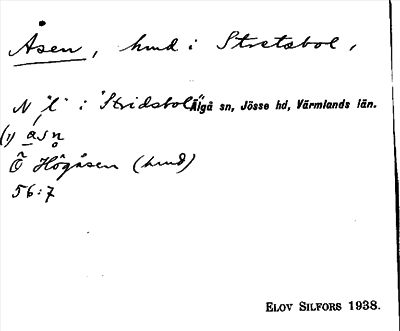 Åsen, hmd i Stretsbol,
N "l" i "Stridsbol" Älgå sn, Jösse hd, Värmlands län.
(1) åsn̥
Ö Högåsen (hmd)
56:7
ELOV SILFORS 1938.